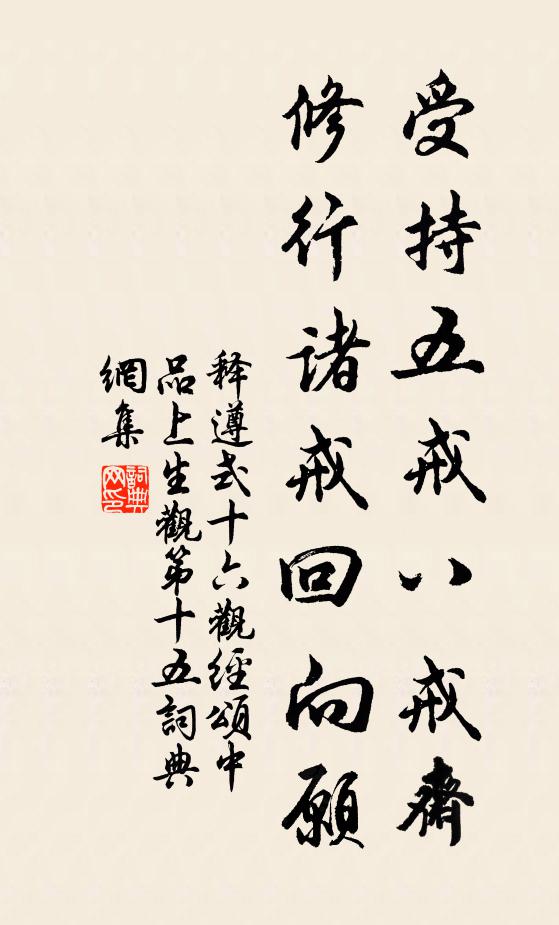 受持五戒八戒齋
修行諸戒回向願
释遵式十六觀經頌中
品上生觀第十五詞典
網集
詞典網印